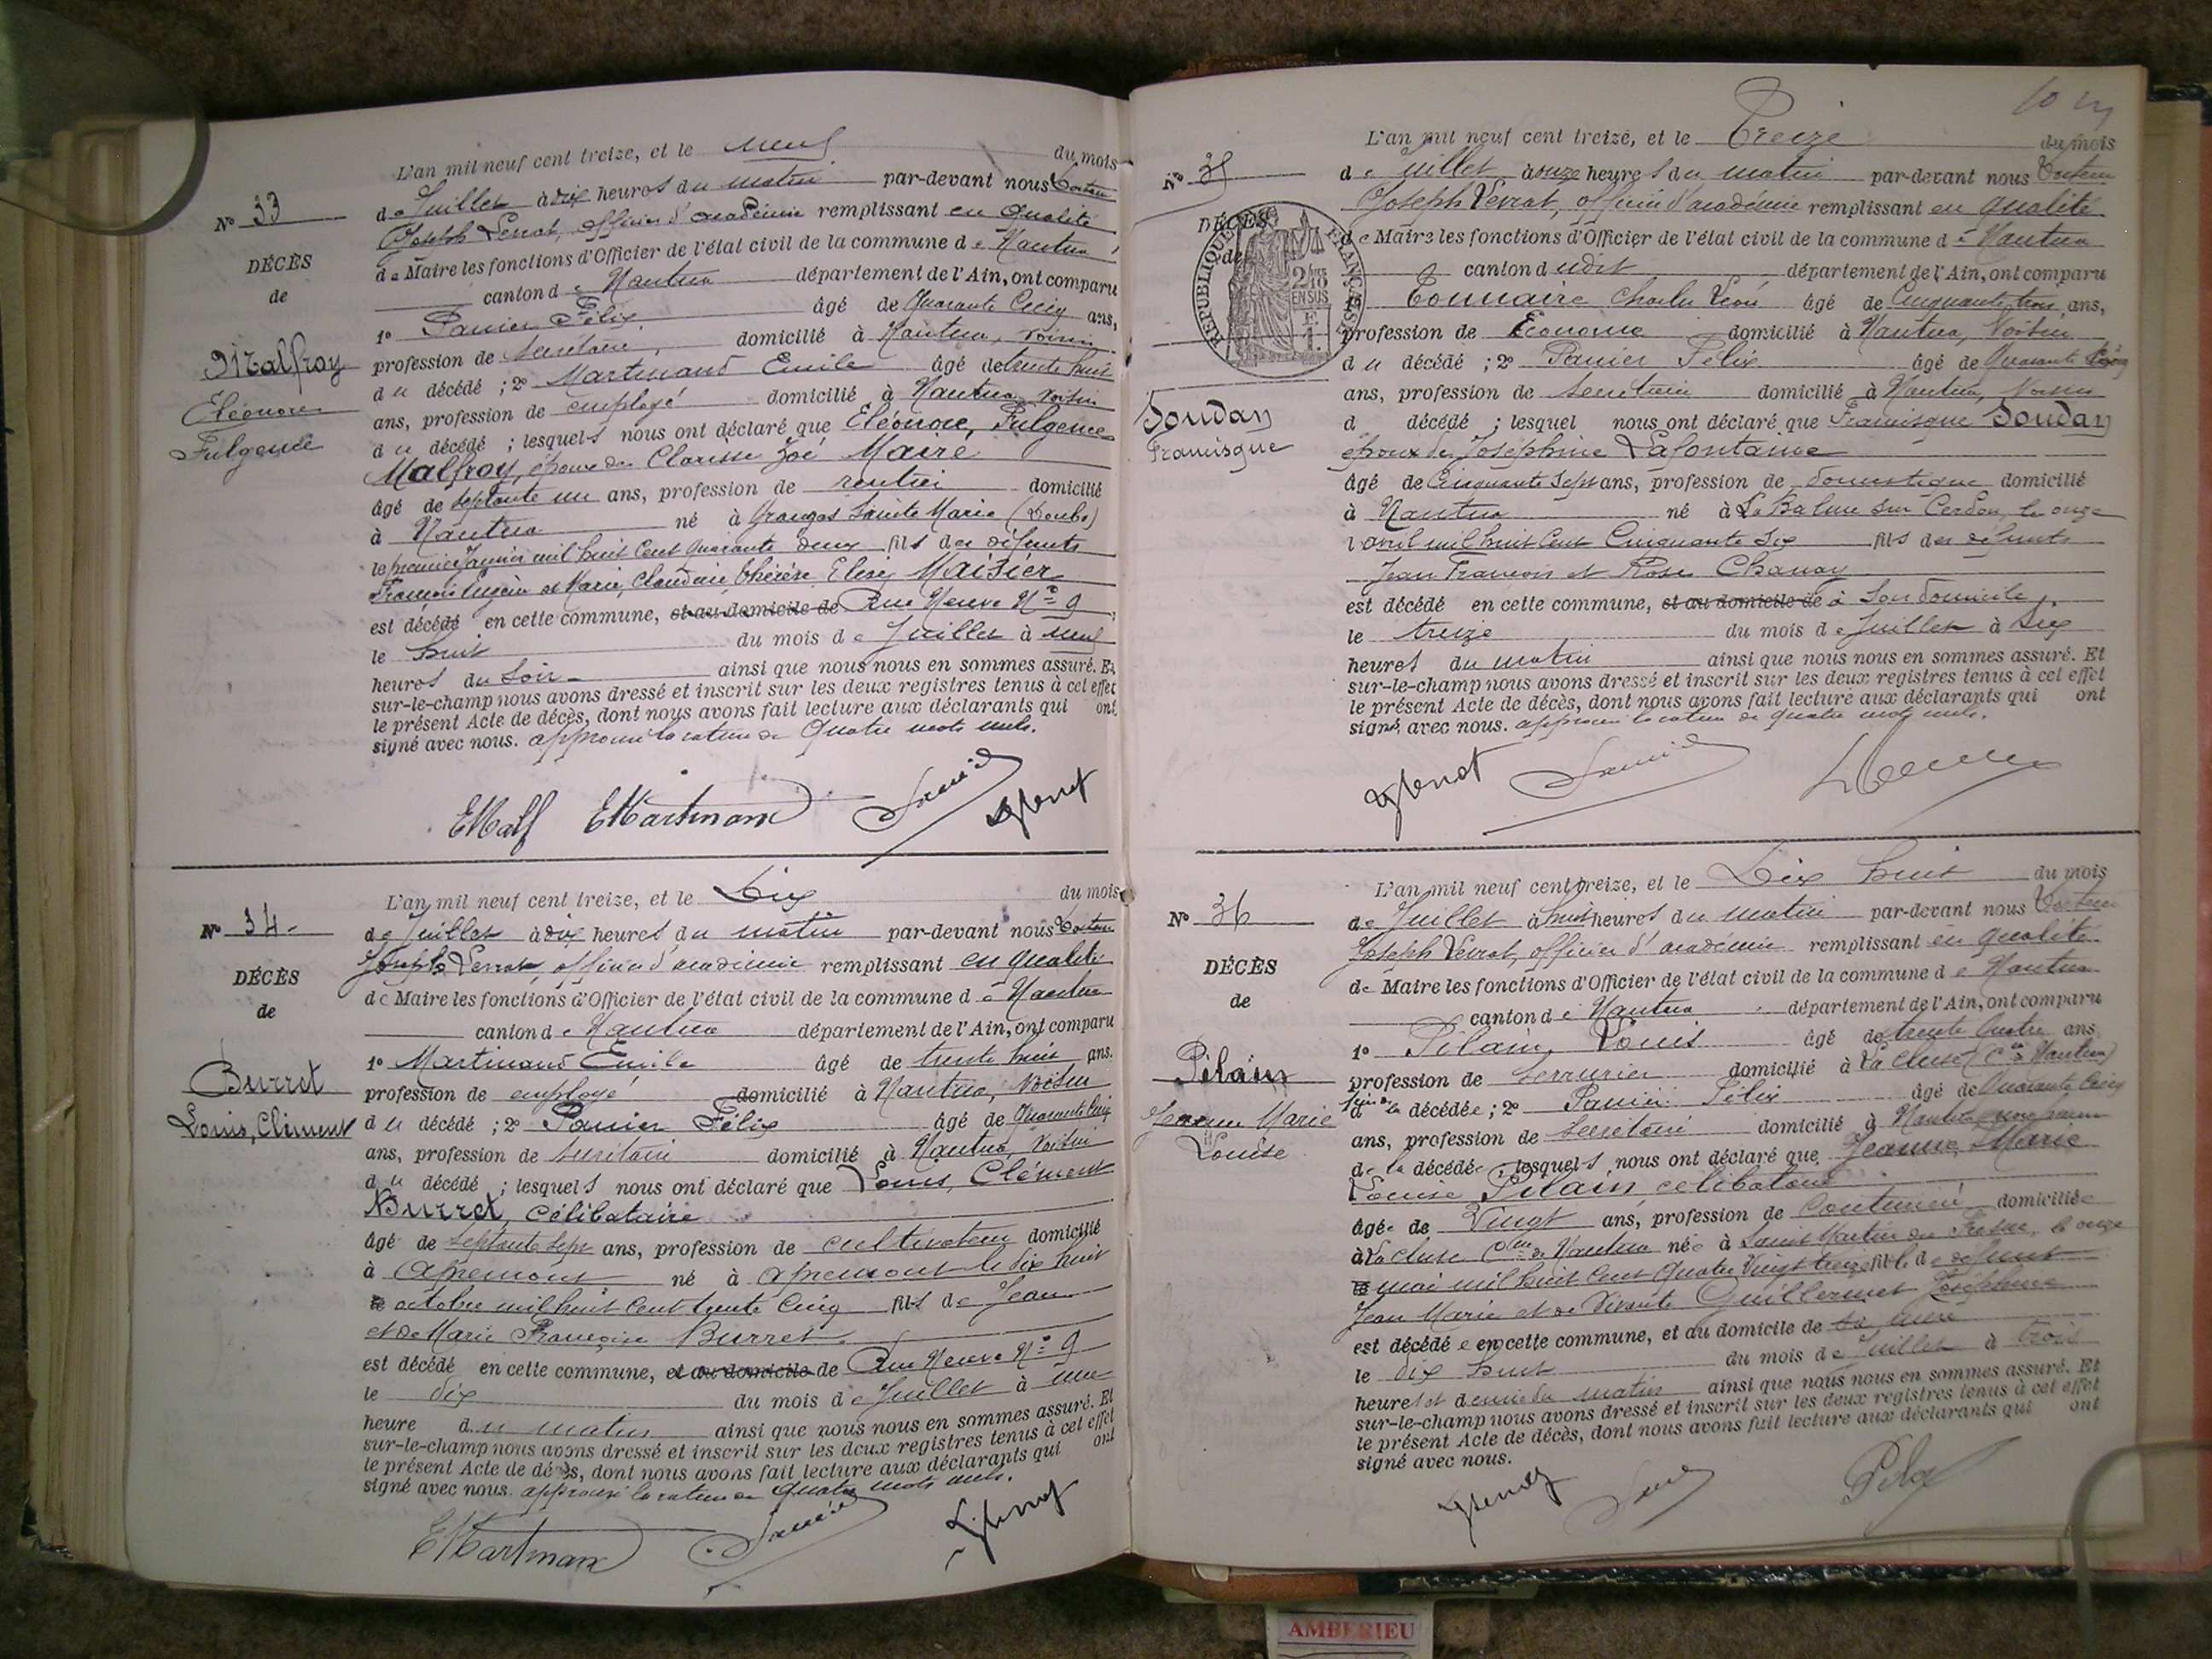 L'an mil neuf cent treize, et le neuf du mois
de Juillet à dix heures du matin par-devant nous Docteur
Joseph Verrat, officier d'académie remplissant en qualité
de Maire les fonctions d'Officier de l'état civil de la commune de Nantua
canton de Nantua département de l'Ain, ont comparu
1º Panier Félix âgé de Quarante Cinq ans,
profession de secrétaire, domicilié à Nantua, voisin
du décédé ; 2º Martinand Emile âgé de trente huit
ans, profession de employé domicilié à Nantua voisin
du décédé ; lesquels nous ont déclaré que Eléonore, Fulgence
Malfroy, époux de Clarisse Zoé Maire
âgé de septante un ans, profession de rentier domicilié
à Nantua né à Granges Sainte Marie (Doubs)
le premier Janvier mil huit Cent quarante deux fils des défunts
François et Marie, Claudine Thérèse Maisier
est décédé en cette commune, et au domicile de Rue Neuve Nº 9
le huit du mois de Juillet à neuf
heures du soir ainsi que nous nous en sommes assuré. Et
sur-le-champ nous avons dressé et inscrit sur les deux registres tenus à cet effet
le présent Acte de décès, dont nous avons fait lecture aux déclarants qui ont
signé avec nous. approuvé la rature de Quatre mots nuls.
Nº 33
DÉCÈS
de
Malfroy
Eléonore
Fulgence
EMalf EMartinand
L'an mil neuf cent treize, et le Dix du mois
de Juillet à dix heures du matin par-devant nous Docteur
Joseph Verrat, officier d'académie remplissant en qualité
de Maire les fonctions d'Officier de l'état civil de la commune de Nantua
canton de Nantua département de l'Ain, ont comparu
1º Martinand Emile âgé de trente huit ans.
profession de employé domicilié à Nantua, voisin
du décédé ; 2º Panier Félix âgé de Quarante Cinq
ans, profession de secrétaire domicilié à Nantua, voisin
du décédé ; lesquels nous ont déclaré que Louis, Clément
Burret, célibataire
âgé de septante sept ans, profession de cultivateur domicilié
à Apremont né à Apremont le dix huit
octobre mil huit Cent trente Cinq fils de Jean
et de Marie Françoise Burret
est décédé en cette commune, et au domicile de Rue Neuve Nº 9
le dix du mois de Juillet à une
heure du matin ainsi que nous nous en sommes assuré. Et
sur-le-champ nous avons dressé et inscrit sur les deux registres tenus à cet effet
le présent Acte de décès, dont nous avons fait lecture aux déclarants qui ont
signé avec nous. approuvé la rature de Quatre mots nuls.
Nº 34
DÉCÈS
de
Burret
Louis, Clément
EMartinand
L'an mil neuf cent treize, et le Treize du mois
de Juillet à onze heures du matin par-devant nous Docteur
Joseph Verrat, officier d'académie remplissant en qualité
de Maire les fonctions d'Officier de l'état civil de la commune de Nantua
canton dudit département de l'Ain, ont comparu
1º Tounaire Charles Léon âgé de Cinquante trois ans,
profession de Econome domicilié à Nantua, Voisin
du décédé ; 2º Panier Félix âgé de Quarante Cinq
ans, profession de secrétaire domicilié à Nantua, voisin
d décédé ; lesquel nous ont déclaré que Francisque Soudan
époux de Joséphine Lafontaine
âgé de Cinquante sept ans, profession de domestique domicilié
à Nantua né à La Balme sur Cerdon, le onze
avril mil huit Cent Cinquante six fils des défunts
Jean François et Rose Chanay
est décédé en cette commune, et au domicile de à son domicile
le treize du mois de Juillet à six
heures du matin ainsi que nous nous en sommes assuré. Et
sur-le-champ nous avons dressé et inscrit sur les deux registres tenus à cet effet
le présent Acte de décès, dont nous avons fait lecture aux déclarants qui ont
signé, avec nous. approuvé la rature de quatre mots nuls.
Nº 35
DÉCÈS
de
RÉPUBLIQUE FRANÇAISE
2/10 EN SUS
Soudan
Francisque
L'an mil neuf cent treize, et le Dix huit du mois
de Juillet à huit heures du matin par-devant nous Docteur
Joseph Verrat, officier d'académie remplissant en qualité
de Maire les fonctions d'Officier de l'état civil de la commune de Nantua
canton de Nantua département de l'Ain, ont comparu
1º Pilain, Louis âgé de trente quatre ans
profession de serrurier domicilié à La Cluse (Cne de Nantua)
de la décédée ; 2º Panier Félix âgé de Quarante Cinq
ans, profession de secrétaire domicilié à Nantua
de la décédée, lesquels nous ont déclaré que Jeanne Marie
Louise Pilain, célibataire
âgée de Vingt ans, profession de Couturière domiciliée
à La Cluse Cne de Nantua née à Saint Martin du Fresne, le onze
mai mil huit Cent Quatre Vingt treize fille de défunt
Jean Marie et de vivante Guillermet Joséphine
est décédée en cette commune, et au domicile de sa mère
le dix huit du mois de Juillet à trois
heures et demie du matin ainsi que nous nous en sommes assuré. Et
sur-le-champ nous avons dressé et inscrit sur les deux registres tenus à cet effet
le présent Acte de décès, dont nous avons fait lecture aux déclarants qui ont
signé avec nous.
Nº 36
DÉCÈS
de
Pilain
Jeanne Marie
Louise
AMBERIEU